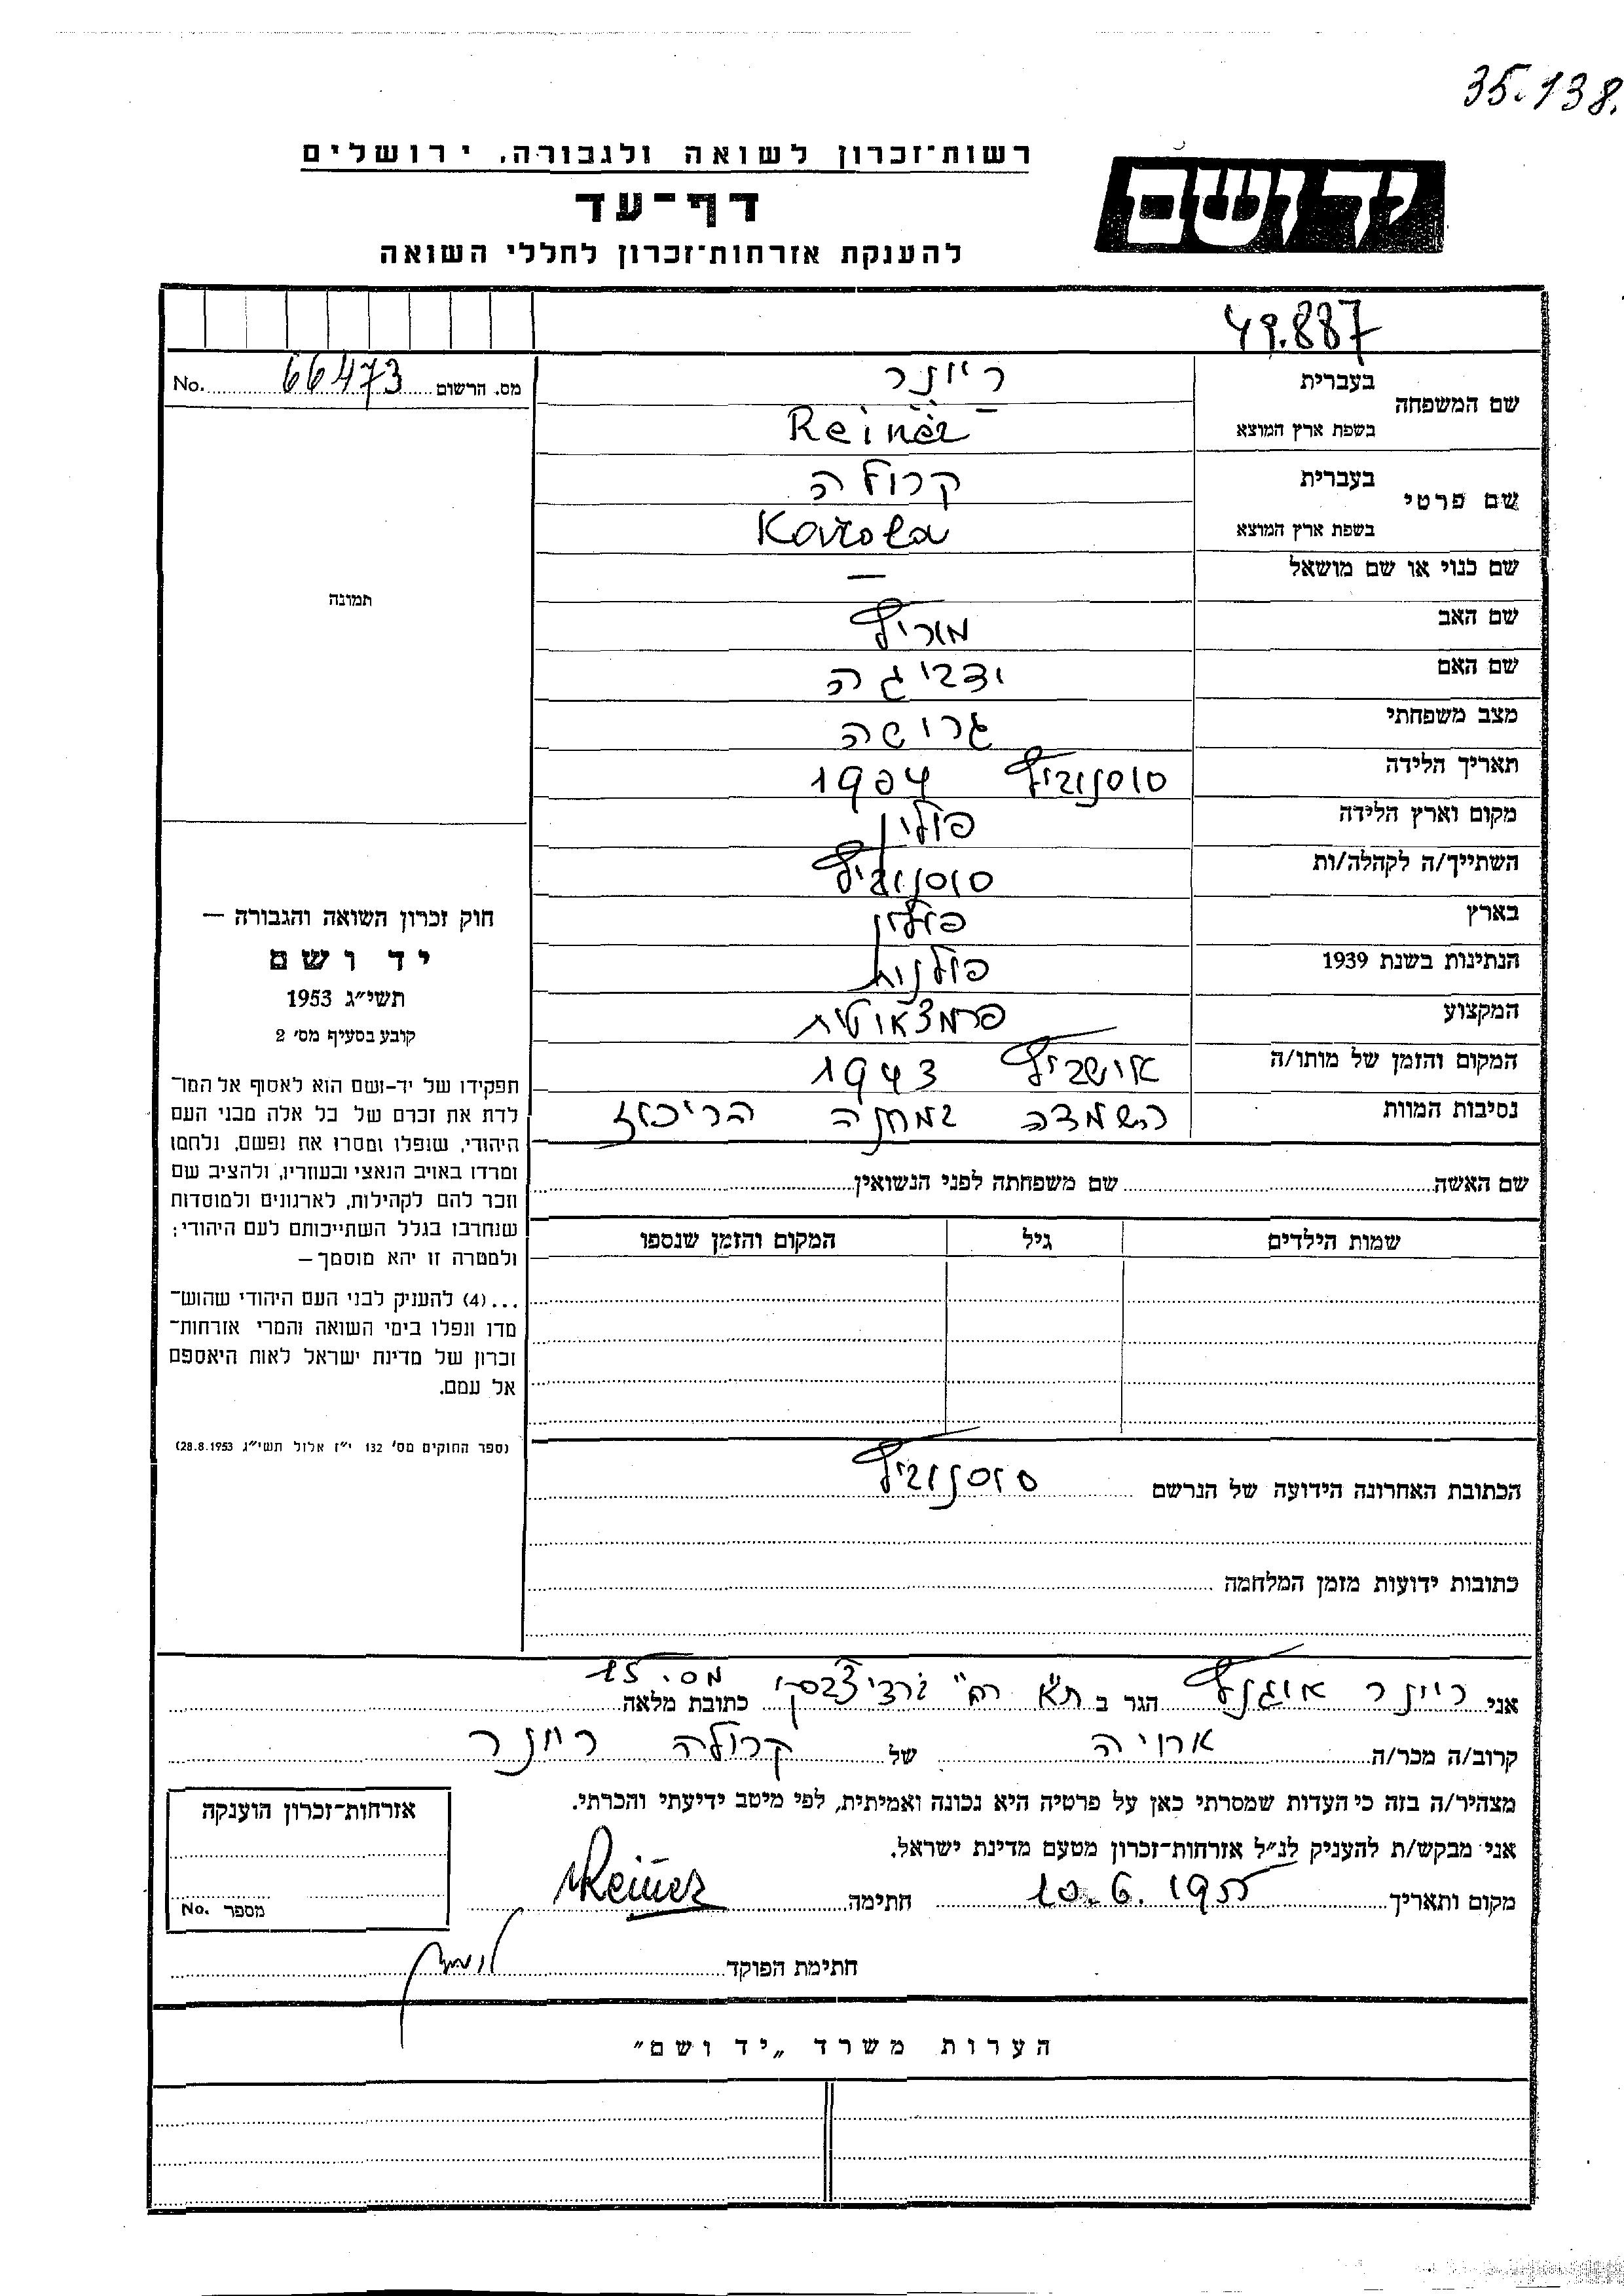 35.138.
רשות־זכרון לשואה ולגבורה, ירושלים
יד ושם
דף־עד
להענקת אזרחות־זכרון לחללי השואה
49.887
מס. הרשום 66473 No.
שם המשפחה בעברית ריינר
בשפת ארץ המוצא Reiner
שם פרטי בעברית קרולה
בשפת ארץ המוצא Karola
שם כנוי או שם מושאל —
שם האב מוריץ
שם האם ידביגה
מצב משפחתי גרושה
תאריך הלידה סוסנוביץ 1904
מקום וארץ הלידה פולין
השתייך/ה לקהלה/ות סוסנוביץ
בארץ פולין
הנתינות בשנת 1939 פולנית
המקצוע פרמצאוטית
המקום והזמן של מותו/ה אושביץ 1943
נסיבות המוות השמדה במחנה הריכוז
תמונה
חוק זכרון השואה והגבורה —
יד ושם
תשי״ג 1953
קובע בסעיף מס׳ 2
תפקידו של יד-ושם הוא לאסוף אל המו־
לדת את זכרם של כל אלה מבני העם
היהודי, שנפלו ומסרו את נפשם, נלחמו
ומרדו באויב הנאצי ובעוזריו, ולהציב שם
וזכר להם לקהילות, לארגונים ולמוסדות
שנחרבו בגלל השתייכותם לעם היהודי;
ולמטרה זו יהא מוסמך —
...(4) להעניק לבני העם היהודי שהוש־
מדו ונפלו בימי השואה והמרי אזרחות־
זכרון של מדינת ישראל לאות היאספם
אל עמם.
(ספר החוקים מס׳ 132 י״ז אלול תשי״ג 28.8.1953)
שם האשה שם משפחתה לפני הנשואין
שמות הילדים גיל המקום והזמן שנספו
הכתובת האחרונה הידועה של הנרשם סוסנוביץ
כתובות ידועות מזמן המלחמה
אני ריינר הגר ב ת״א רח׳ כתובת מלאה מס. 15
קרוב/ה מכר/ה של קרולה ריינר
מצהיר/ה בזה כי העדות שמסרתי כאן על פרטיה היא נכונה ואמיתית, לפי מיטב ידיעתי והכרתי.
אני מבקש/ת להעניק לנ״ל אזרחות־זכרון מטעם מדינת ישראל.
מקום ותאריך 10.6.1955 חתימה Reiner
אזרחות־זכרון הוענקה
מספר No.
חתימת הפוקד
הערות משרד „יד ושם״